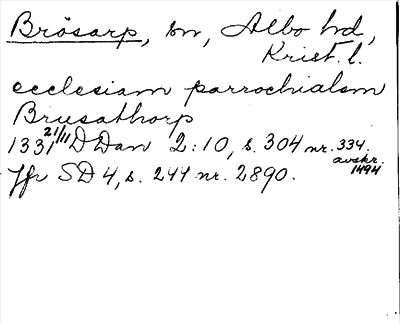 Brösarp, sn, Albo hd,
Krist. l.
ecclesiam parrochialem
Brusathorp
1331 21/11 D Dan 2:10, s. 304 nr. 334.
avskr. 1494
Jfr SD 4, s. 244 nr. 2890.